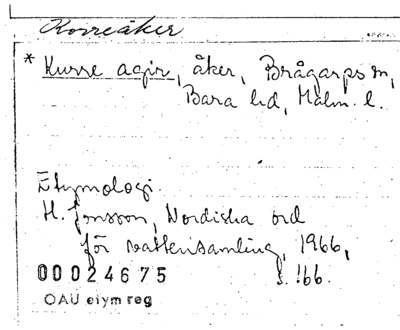 Korreåker
* Kurre agir, åker, Brågarps sn,
Bara hd, Malm. l.
Etymologi.
H. Jonsson, Nordiska ord
för vattensamling, 1966,
00024675 s. 166.
OAU etym reg